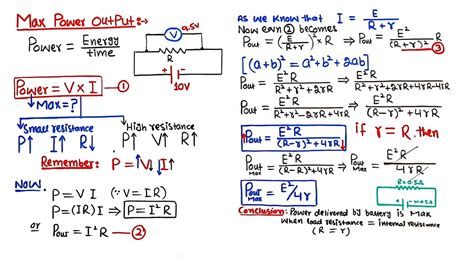 Max Power Output:→
Power = Energy/time
V 0,5V
R
10V
Power = V × I → ①
Max = ?
Small resistance
P↑ I↑ R↓
High resistance
P↑ V↑ R↑
Remember: P = ↑V↓I↑
NOW.
P = V I (∵ V = IR)
P = (IR) I ⇒ P = I²R
or Pout = I²R → ②
As we know that I = E/R+r
Now eqn ② becomes
Pout = (E/R+r)² × R ⇒ Pout = E²/(R+r)² R ③
[(a+b)² = a²+b²+2ab]
Pout = E²R/R²+r²+2rR ⇒ E²R/R²+r²+2rR+4rR-4rR
Pout = E²R/R²+r²-2rR+4rR ⇒ E²R/(R-r)²+4rR
↑Pout = E²R/(R-r)²+4rR↓ if r = R. then
Pout Max = E²R/(R-R)²+4rR ⇒ Pout Max = E²R/4rR
Pout Max = E²/4r
R=0.5Ω
Conclusion: Power delivered by battery is Max
when load resistance = internal resistance
(R = r)